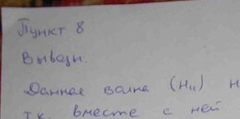 Пункт 8
Выводы.
Данная волна (H₁₁) н
т.к. вместе с ней